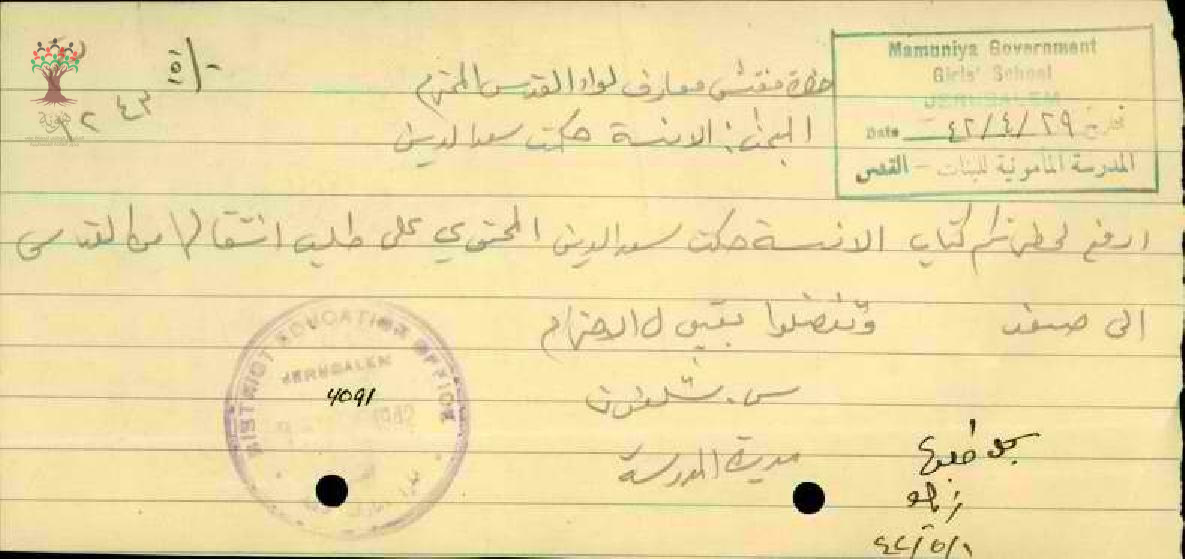 Mamuniya Government
Girls' School
JERUSALEM
Date ٤٢/٤/٢٩ تاريخ
المدرسة المأمونية للبنات - القدس
حضرة مفتش معارف لواء القدس المحترم
المبحث: الانسة حكمت سعد الدين
ارفع لحضرتكم كتاب الانسة حكمت سعد الدين المحتوي على طلب انتقالها من القدس
الى صفد وتفضلوا بقبول الاحترام
مديرة المدرسة
DISTRICT EDUCATION OFFICE
JERUSALEM
4091
1942
٤٢/٥/١